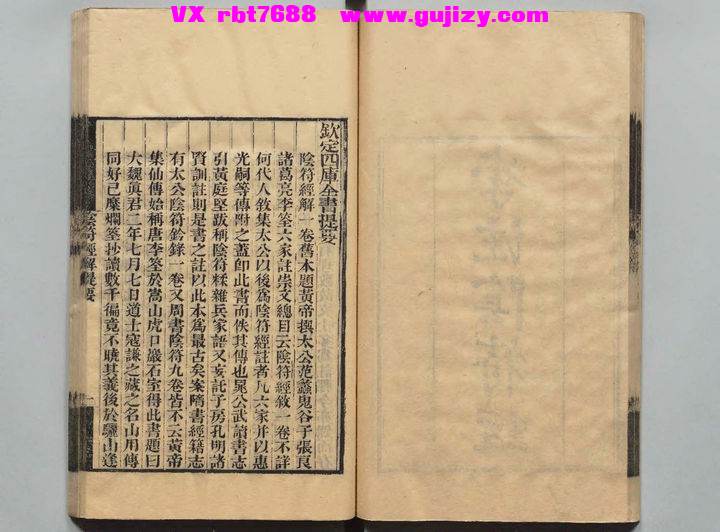 VX rbt7688 www.gujizy.com
欽定四庫全書提要
陰符經解一卷舊本題黃帝撰太公范蠡鬼谷子張良
諸葛亮李筌六家註崇文總目云陰符經敘一卷不詳
何代人敘集太公以後為陰符經註者凡六家并以惠
光嗣等傳附之蓋卽此書而佚其傳也晁公武讀書志
引黃庭堅跋稱陰符糅雜兵家語又妄託子房孔明諸
賢訓註則是書之註以此本為最古矣案隋書經籍志
有太公陰符鈐錄一卷又周書陰符九卷皆不云黃帝
集仙傳始稱唐李筌於嵩山虎口巖石室得此書題曰
大魏眞君二年七月七日道士寇謙之藏之名山用傳
同好已糜爛筌抄讀數千徧竟不曉其義後於驪山逢
陰符經解提要
一